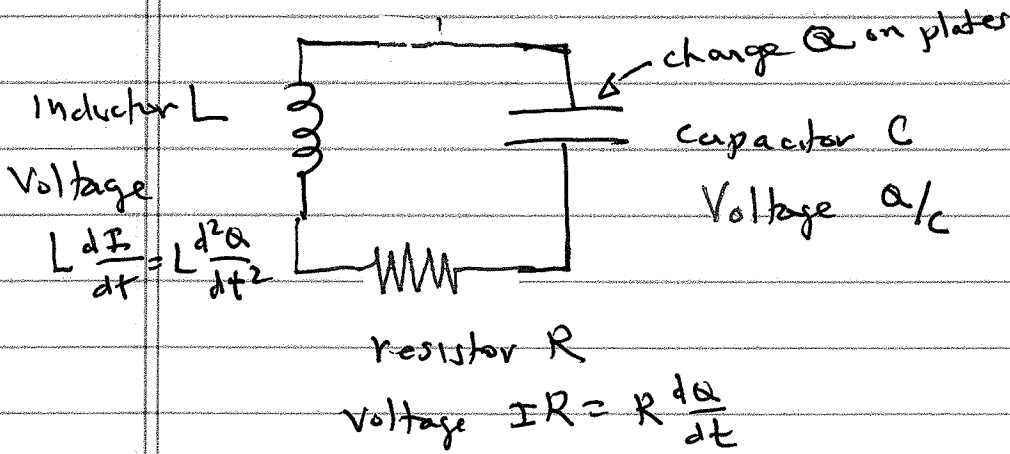 charge Q on plates
Inductor L
capacitor C
Voltage
Voltage Q/C
L dI/dt = L d²Q/dt²
resistor R
Voltage IR = R dQ/dt